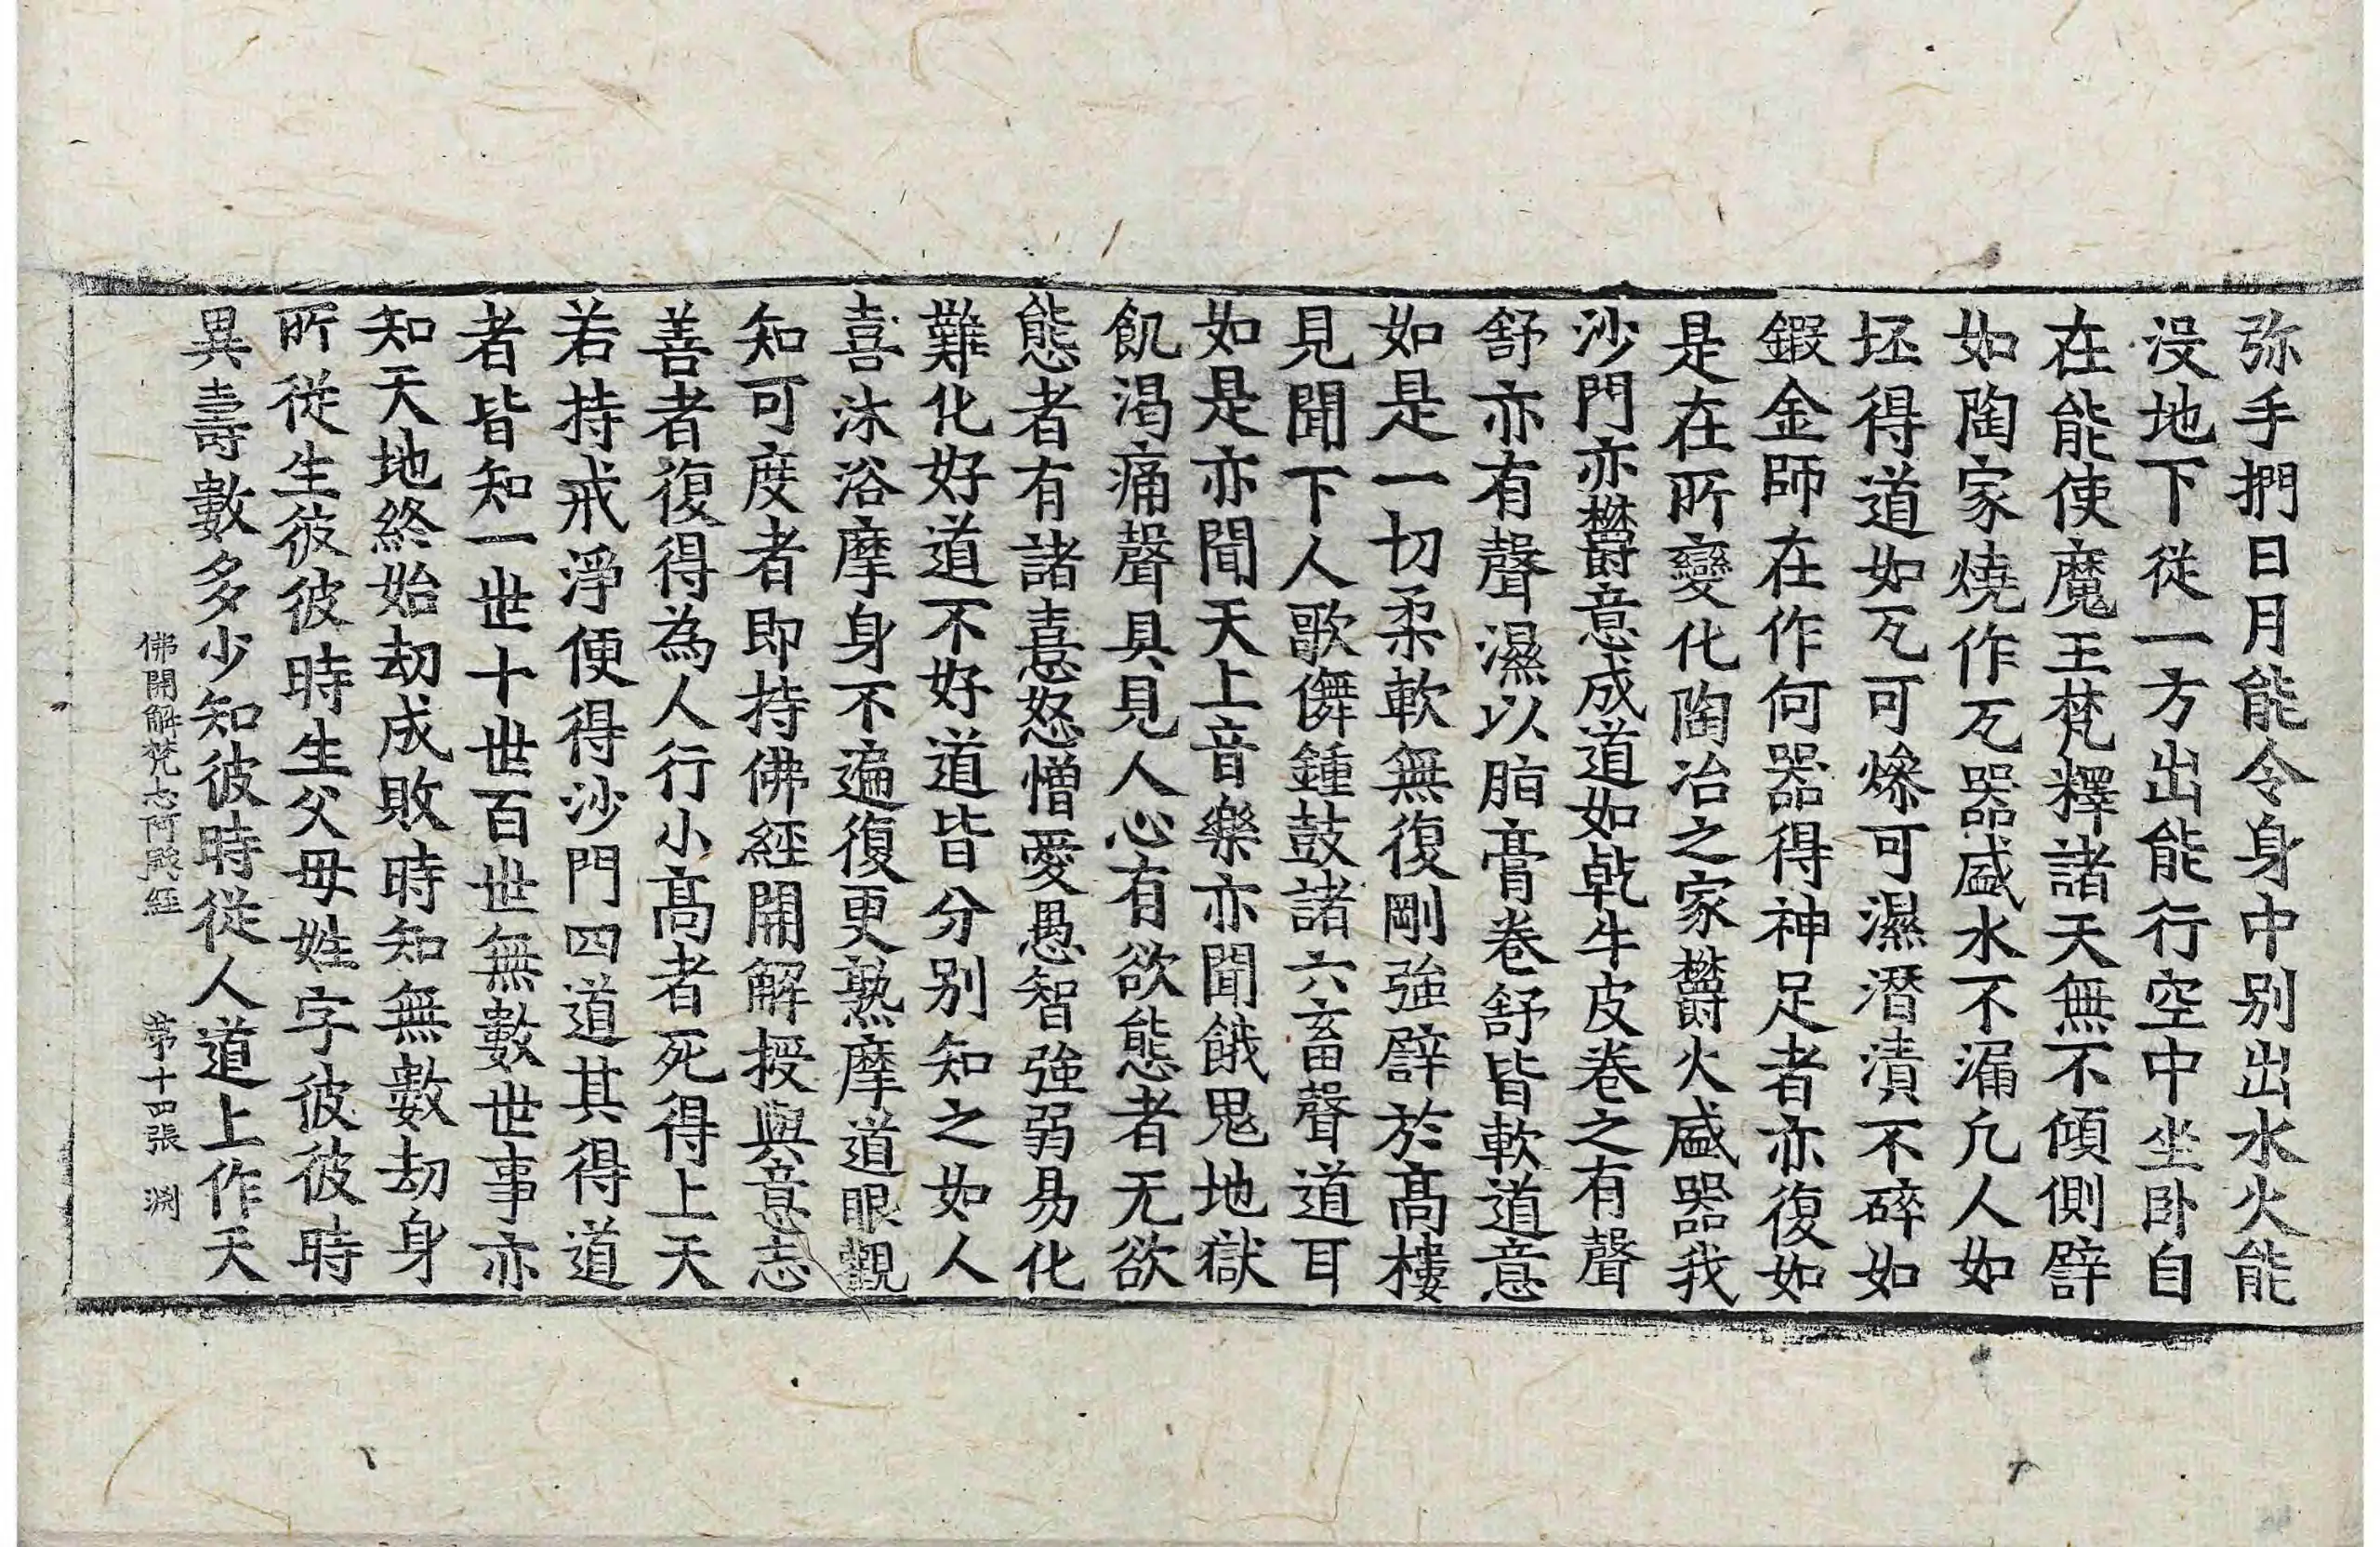 弥手捫日月能令身中別出水火能
没地下從一方出能行空中坐卧自
在能使魔王梵釋諸天無不傾側辟
如陶家燒作瓦器盛水不漏凢人如
坯得道如瓦可㷮可濕潛漬不碎如
鍜金師在作何器得神足者亦復如
是在所變化陶冶之家欝火盛器我
沙門亦欝意成道如乹牛皮卷之有聲
舒亦有聲濕以脂膏卷舒皆軟道意
如是一切柔軟無復剛強辟於髙樓
見聞下人歌儛鍾鼓諸六畜聲道耳
如是亦聞天上音樂亦聞餓鬼地獄
飢渴痛聲具見人心有欲態者无欲
態者有諸憙怒憎愛愚智強弱易化
難化好道不好道皆分别知之如人
喜沐浴摩身不遍復更熟摩道眼觀
知可度者即持佛經開解授與意志
善者復得為人行小髙者死得上天
若持戒淨便得沙門四道其得道
者皆知一世十世百世無數世事亦
知天地終始劫成敗時知無數劫身
所從生彼彼時生父母姓字彼彼時
異壽數多少知彼時從人道上作天
佛開解梵志阿颰經 第十四張 渊